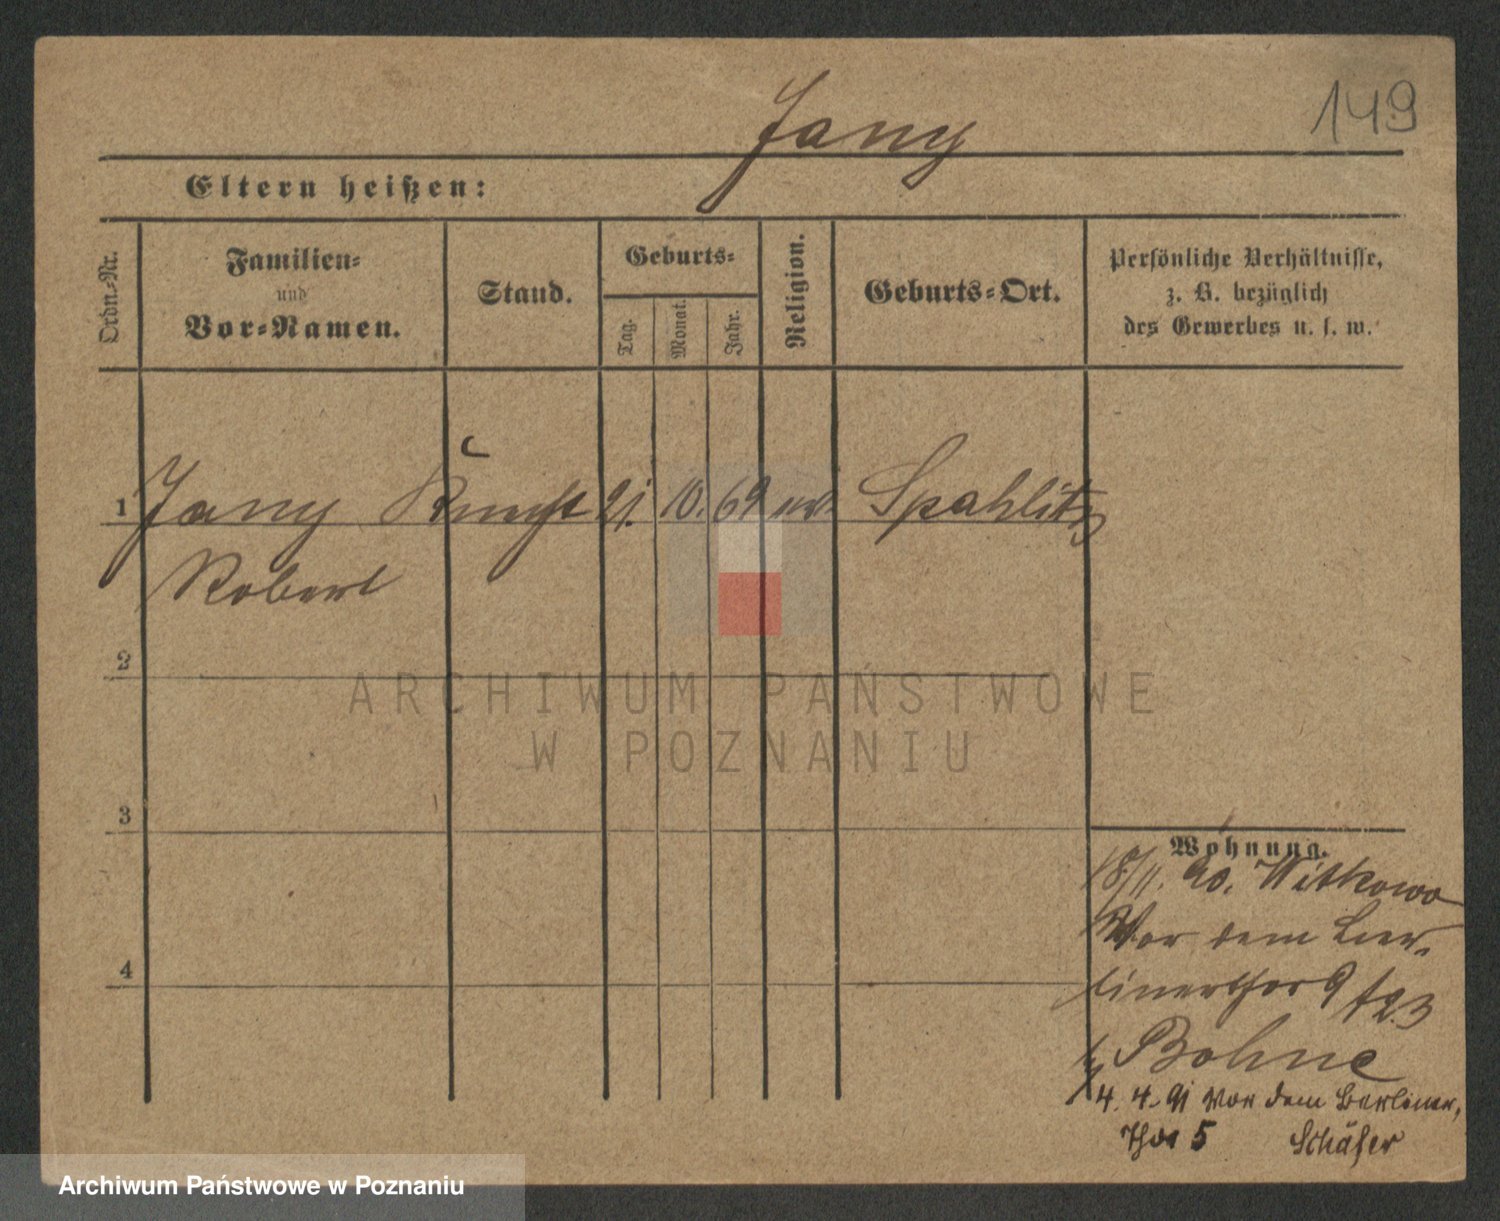 149
Jany
Eltern heißen:
Ordn.-Nr.
Familien-
und
Vor-Namen.
Stand.
Geburts-
Tag.
Monat.
Jahr.
Religion.
Geburts-Ort.
Persönliche Verhältnisse,
z. B. bezüglich
des Gewerbes u. s. w.
1 Jany Knecht 21. 10. 69 ev. Spahlitz
Robert
2
3
4
Wohnung.
18/11. 90. Witkowo
Vor dem Ber-
linerthor 9
Bohne
4. 4. 91 Vor dem Berliner,
Thor 5 Schäfer
ARCHIWUM PAŃSTWOWE
W POZNANIU
Archiwum Państwowe w Poznaniu